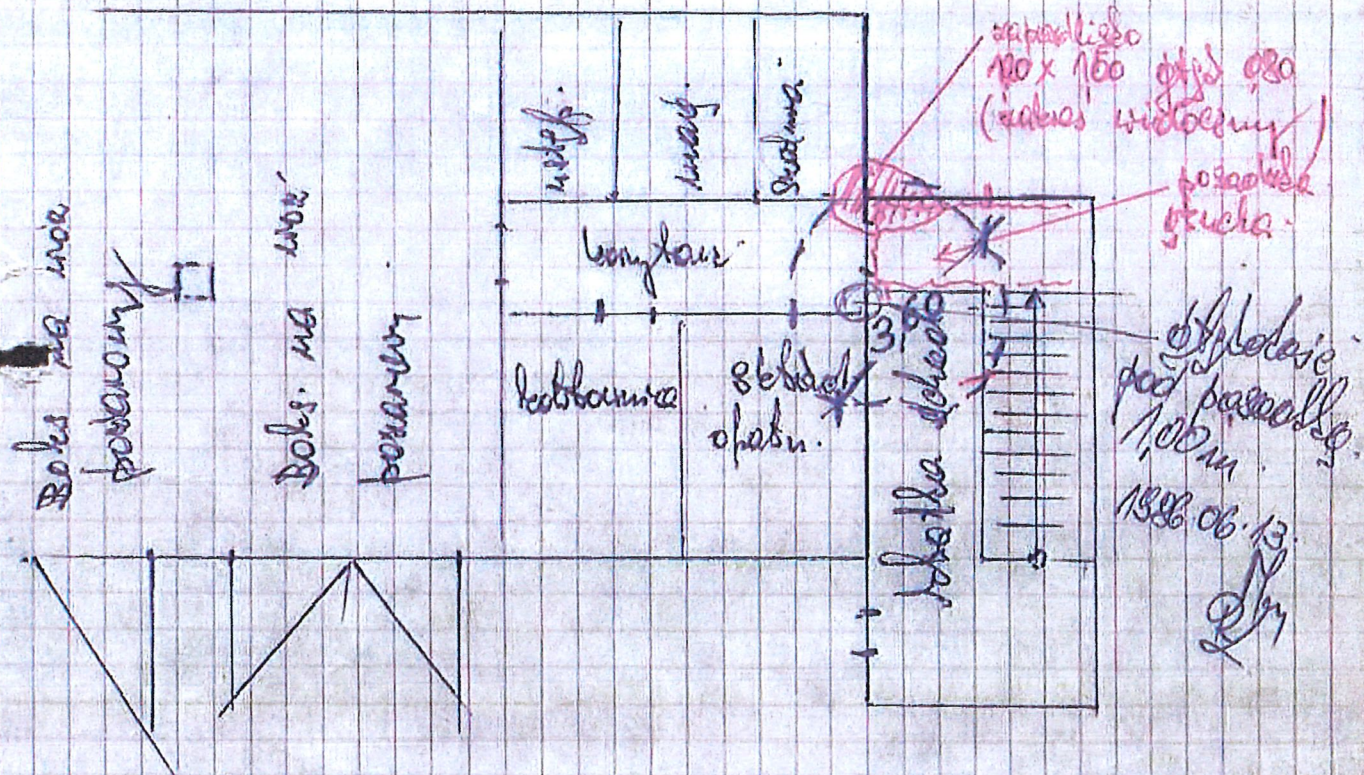 Boks na wóz
pożarowy
Boks na wóz
pożarowy
wstęp.
mag.
korytarz
kotłownia
skład
opału.
klatka schodo
zapadlisko
120 x 160 głęb 0,80
(zakres widoczny)
posadzka
głucha.
pod posadzką
1,00m.
1996.06.13.